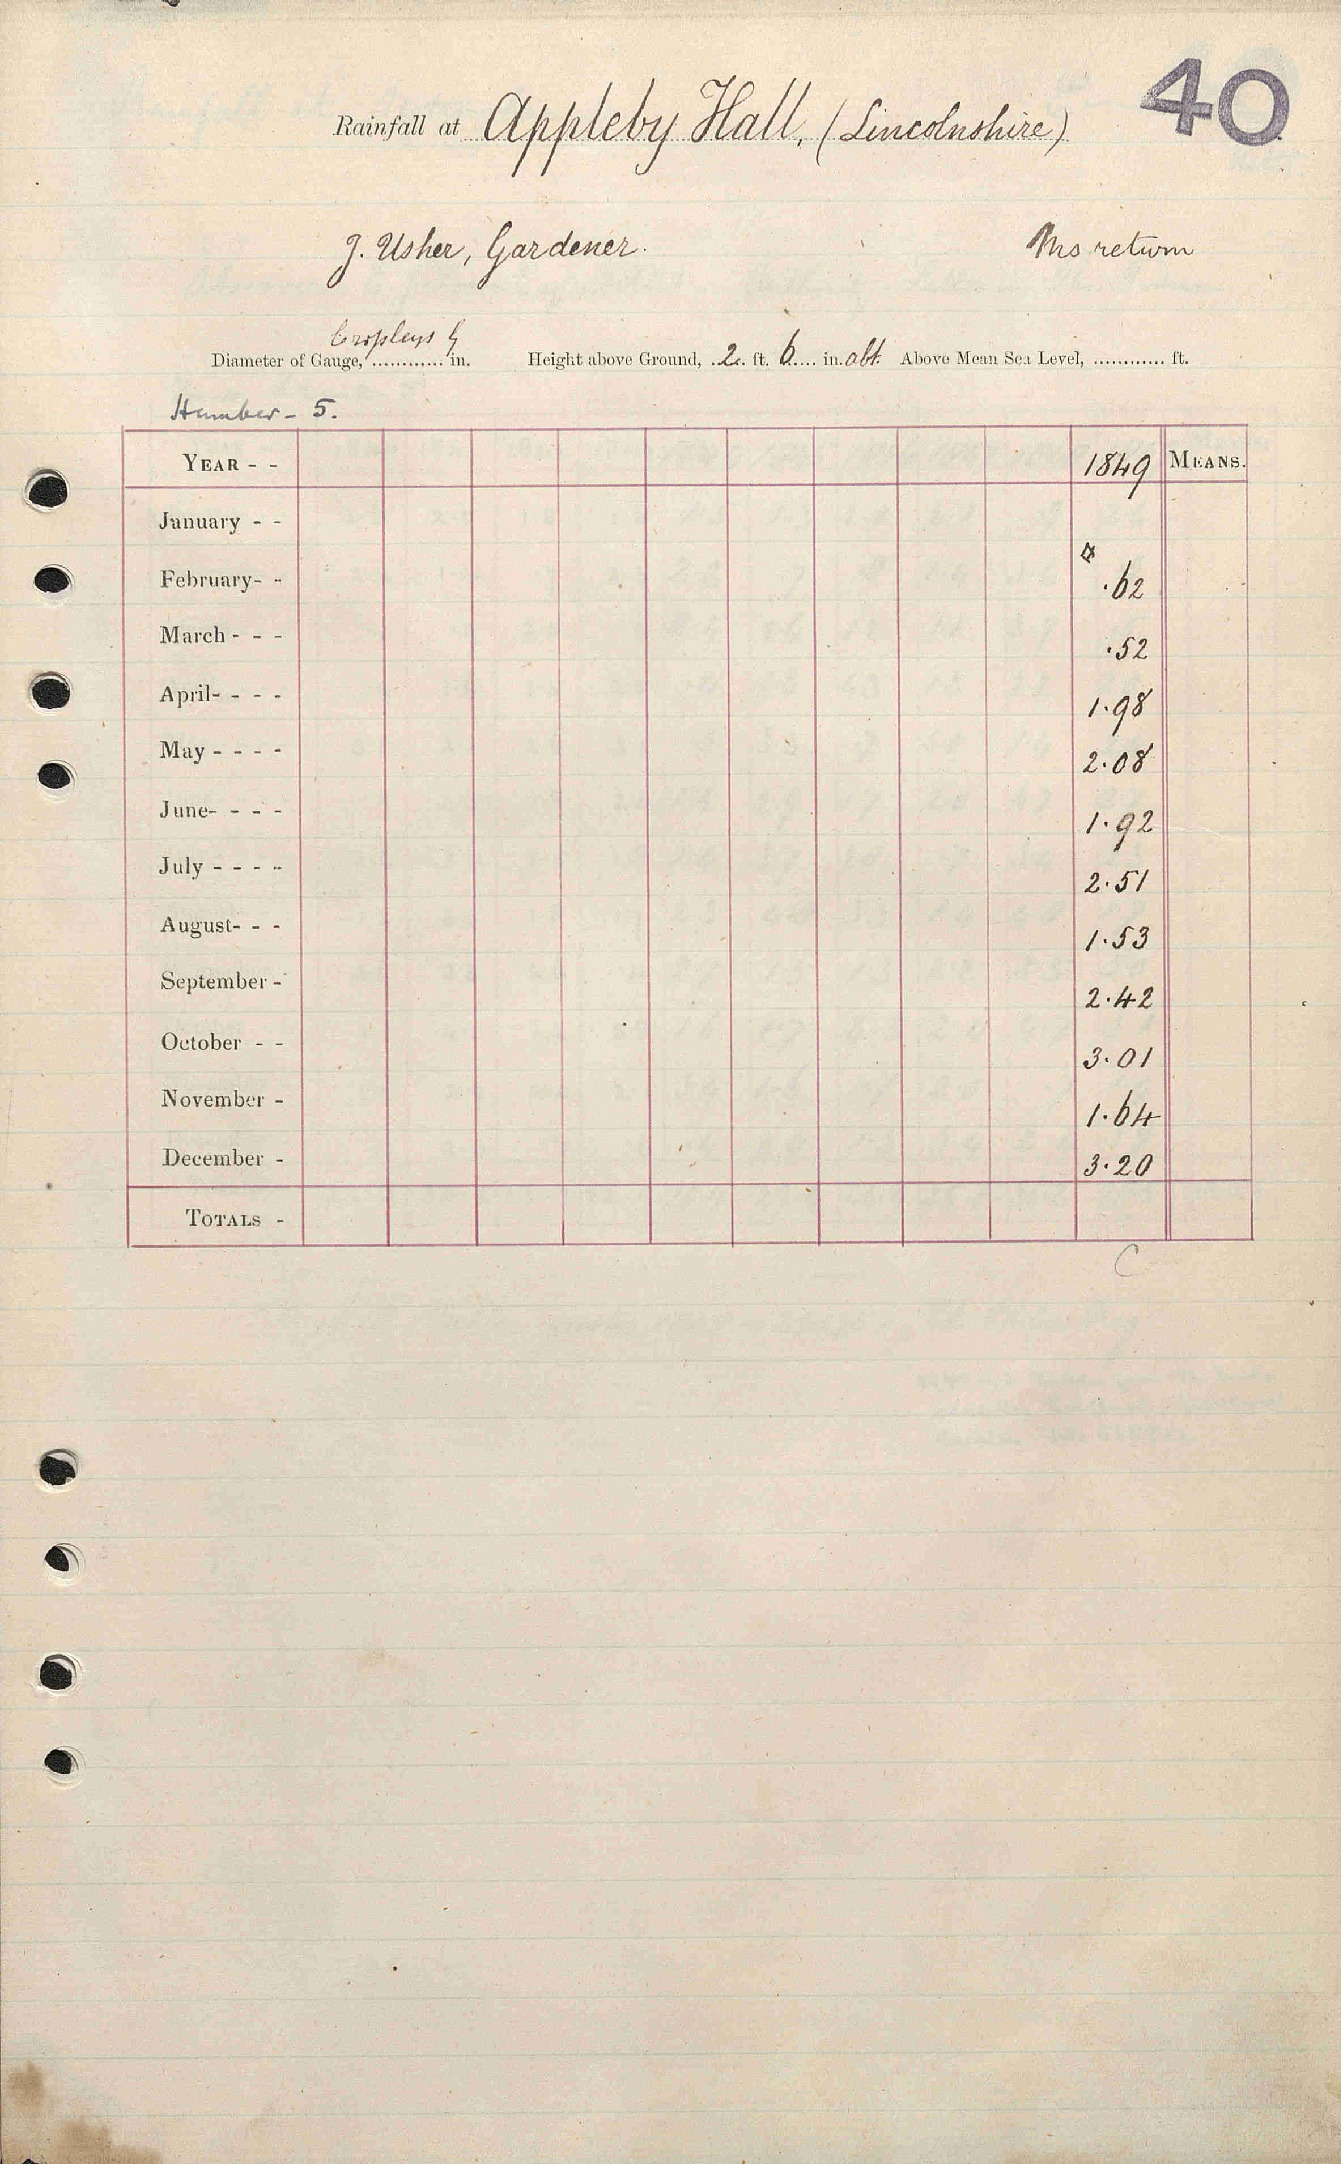 40
Rainfall at Appleby Hall, (Lincolnshire)
J. Usher, Gardener. Ms return
Cropleys G
Diameter of Gauge, ............ in. Height above Ground, 2 ft. 6 in. abt. Above Mean Sea Level, ............ ft.
Humber - 5.
YEAR - - 1849 MEANS.
January - -
February - - .62
March - - - .52
April - - - - 1.98
May - - - - 2.08
June - - - - 1.92
July - - - - 2.51
August - - - 1.53
September - 2.42
October - - 3.01
November - 1.64
December - 3.20
TOTALS -
C